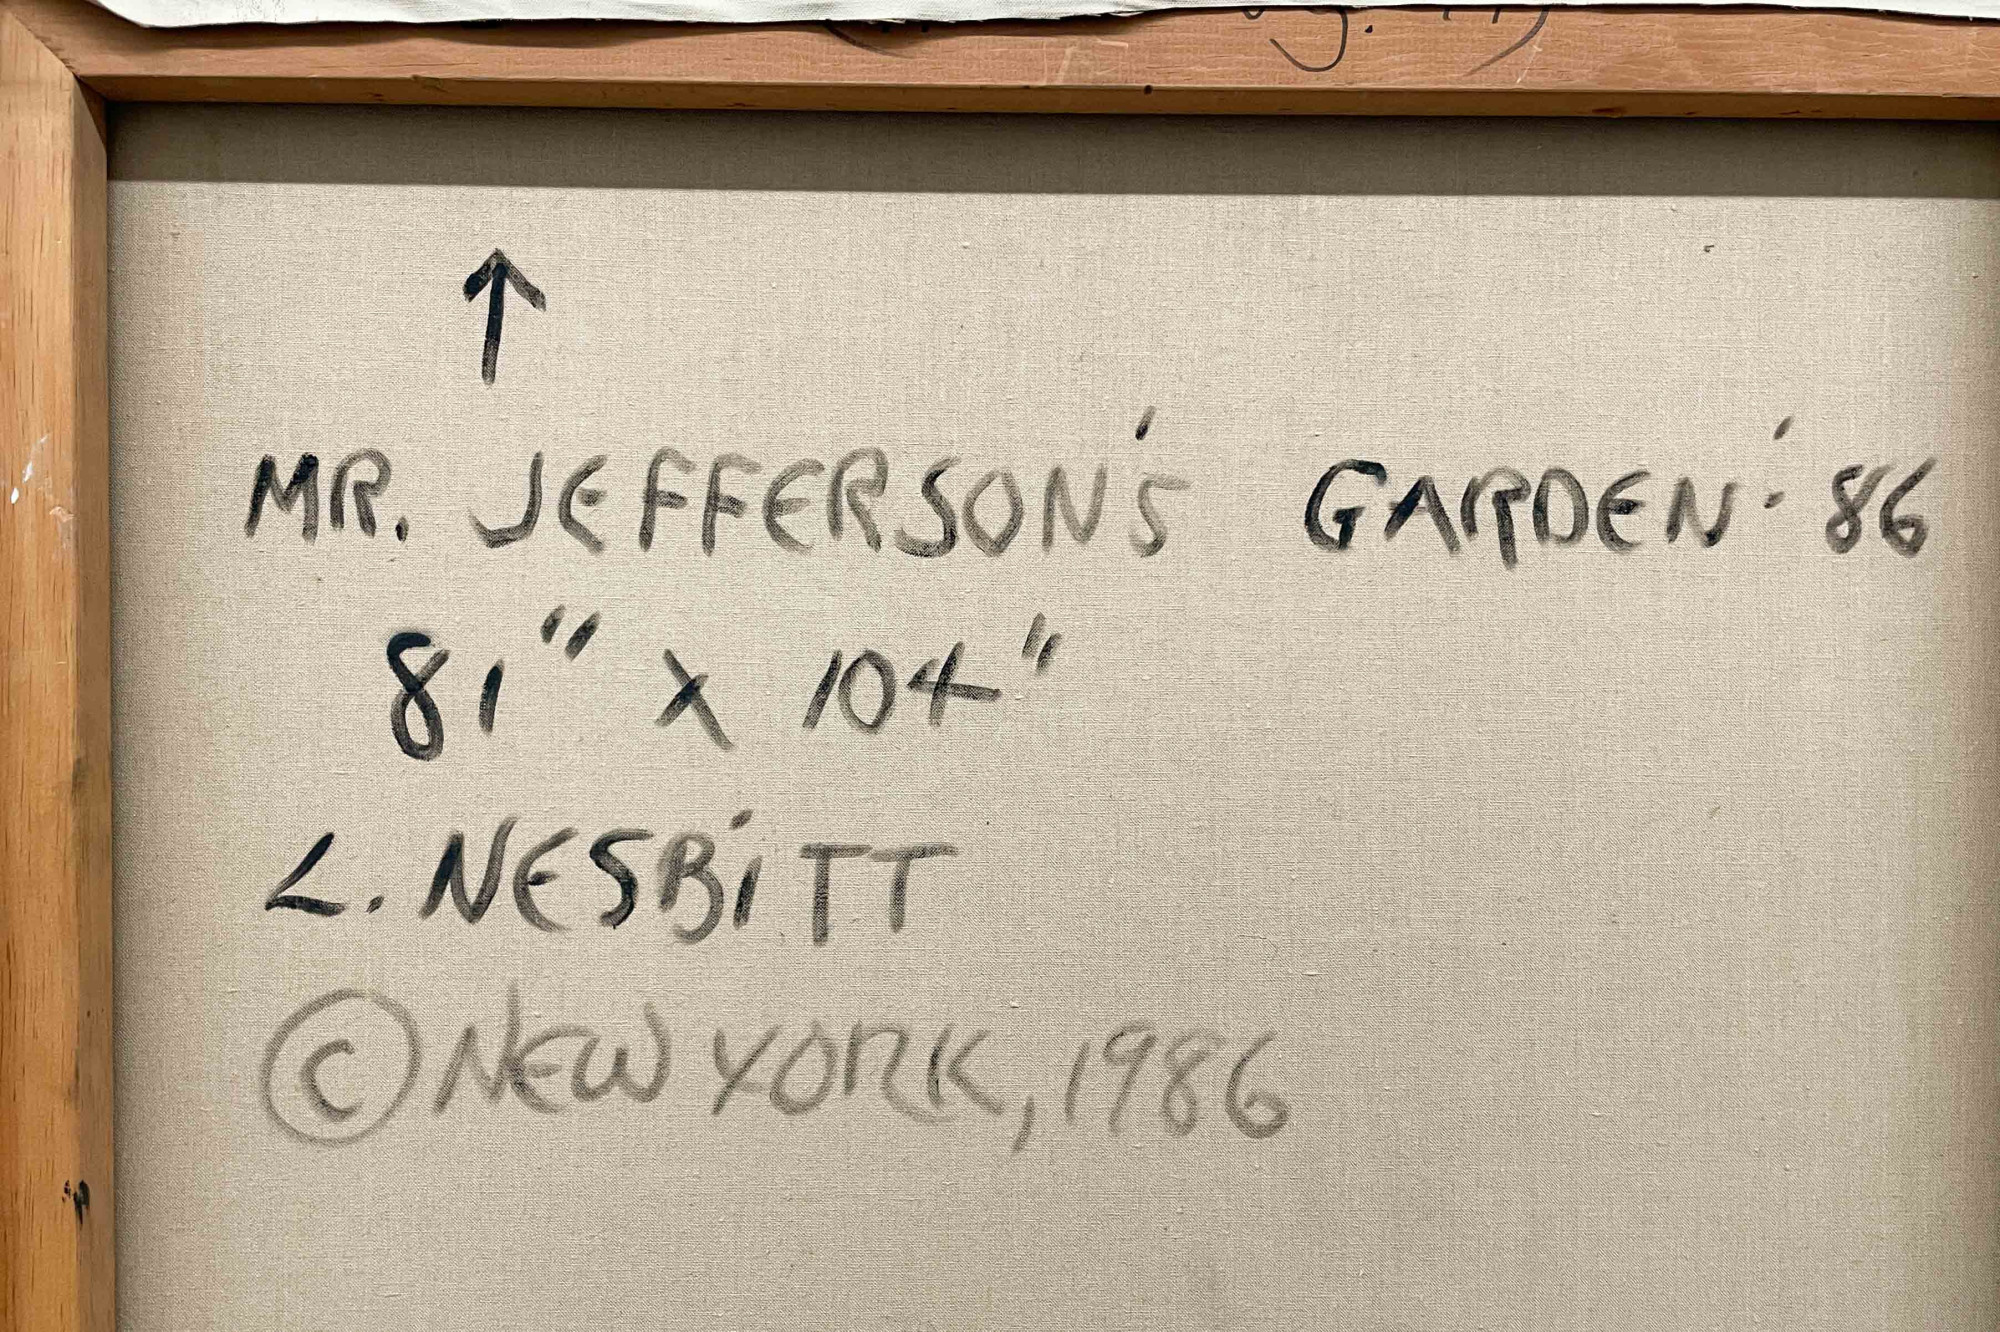 ↑
MR. JEFFERSON'S GARDEN '86
81" X 104"
L. NESBiTT
© NEW YORK, 1986